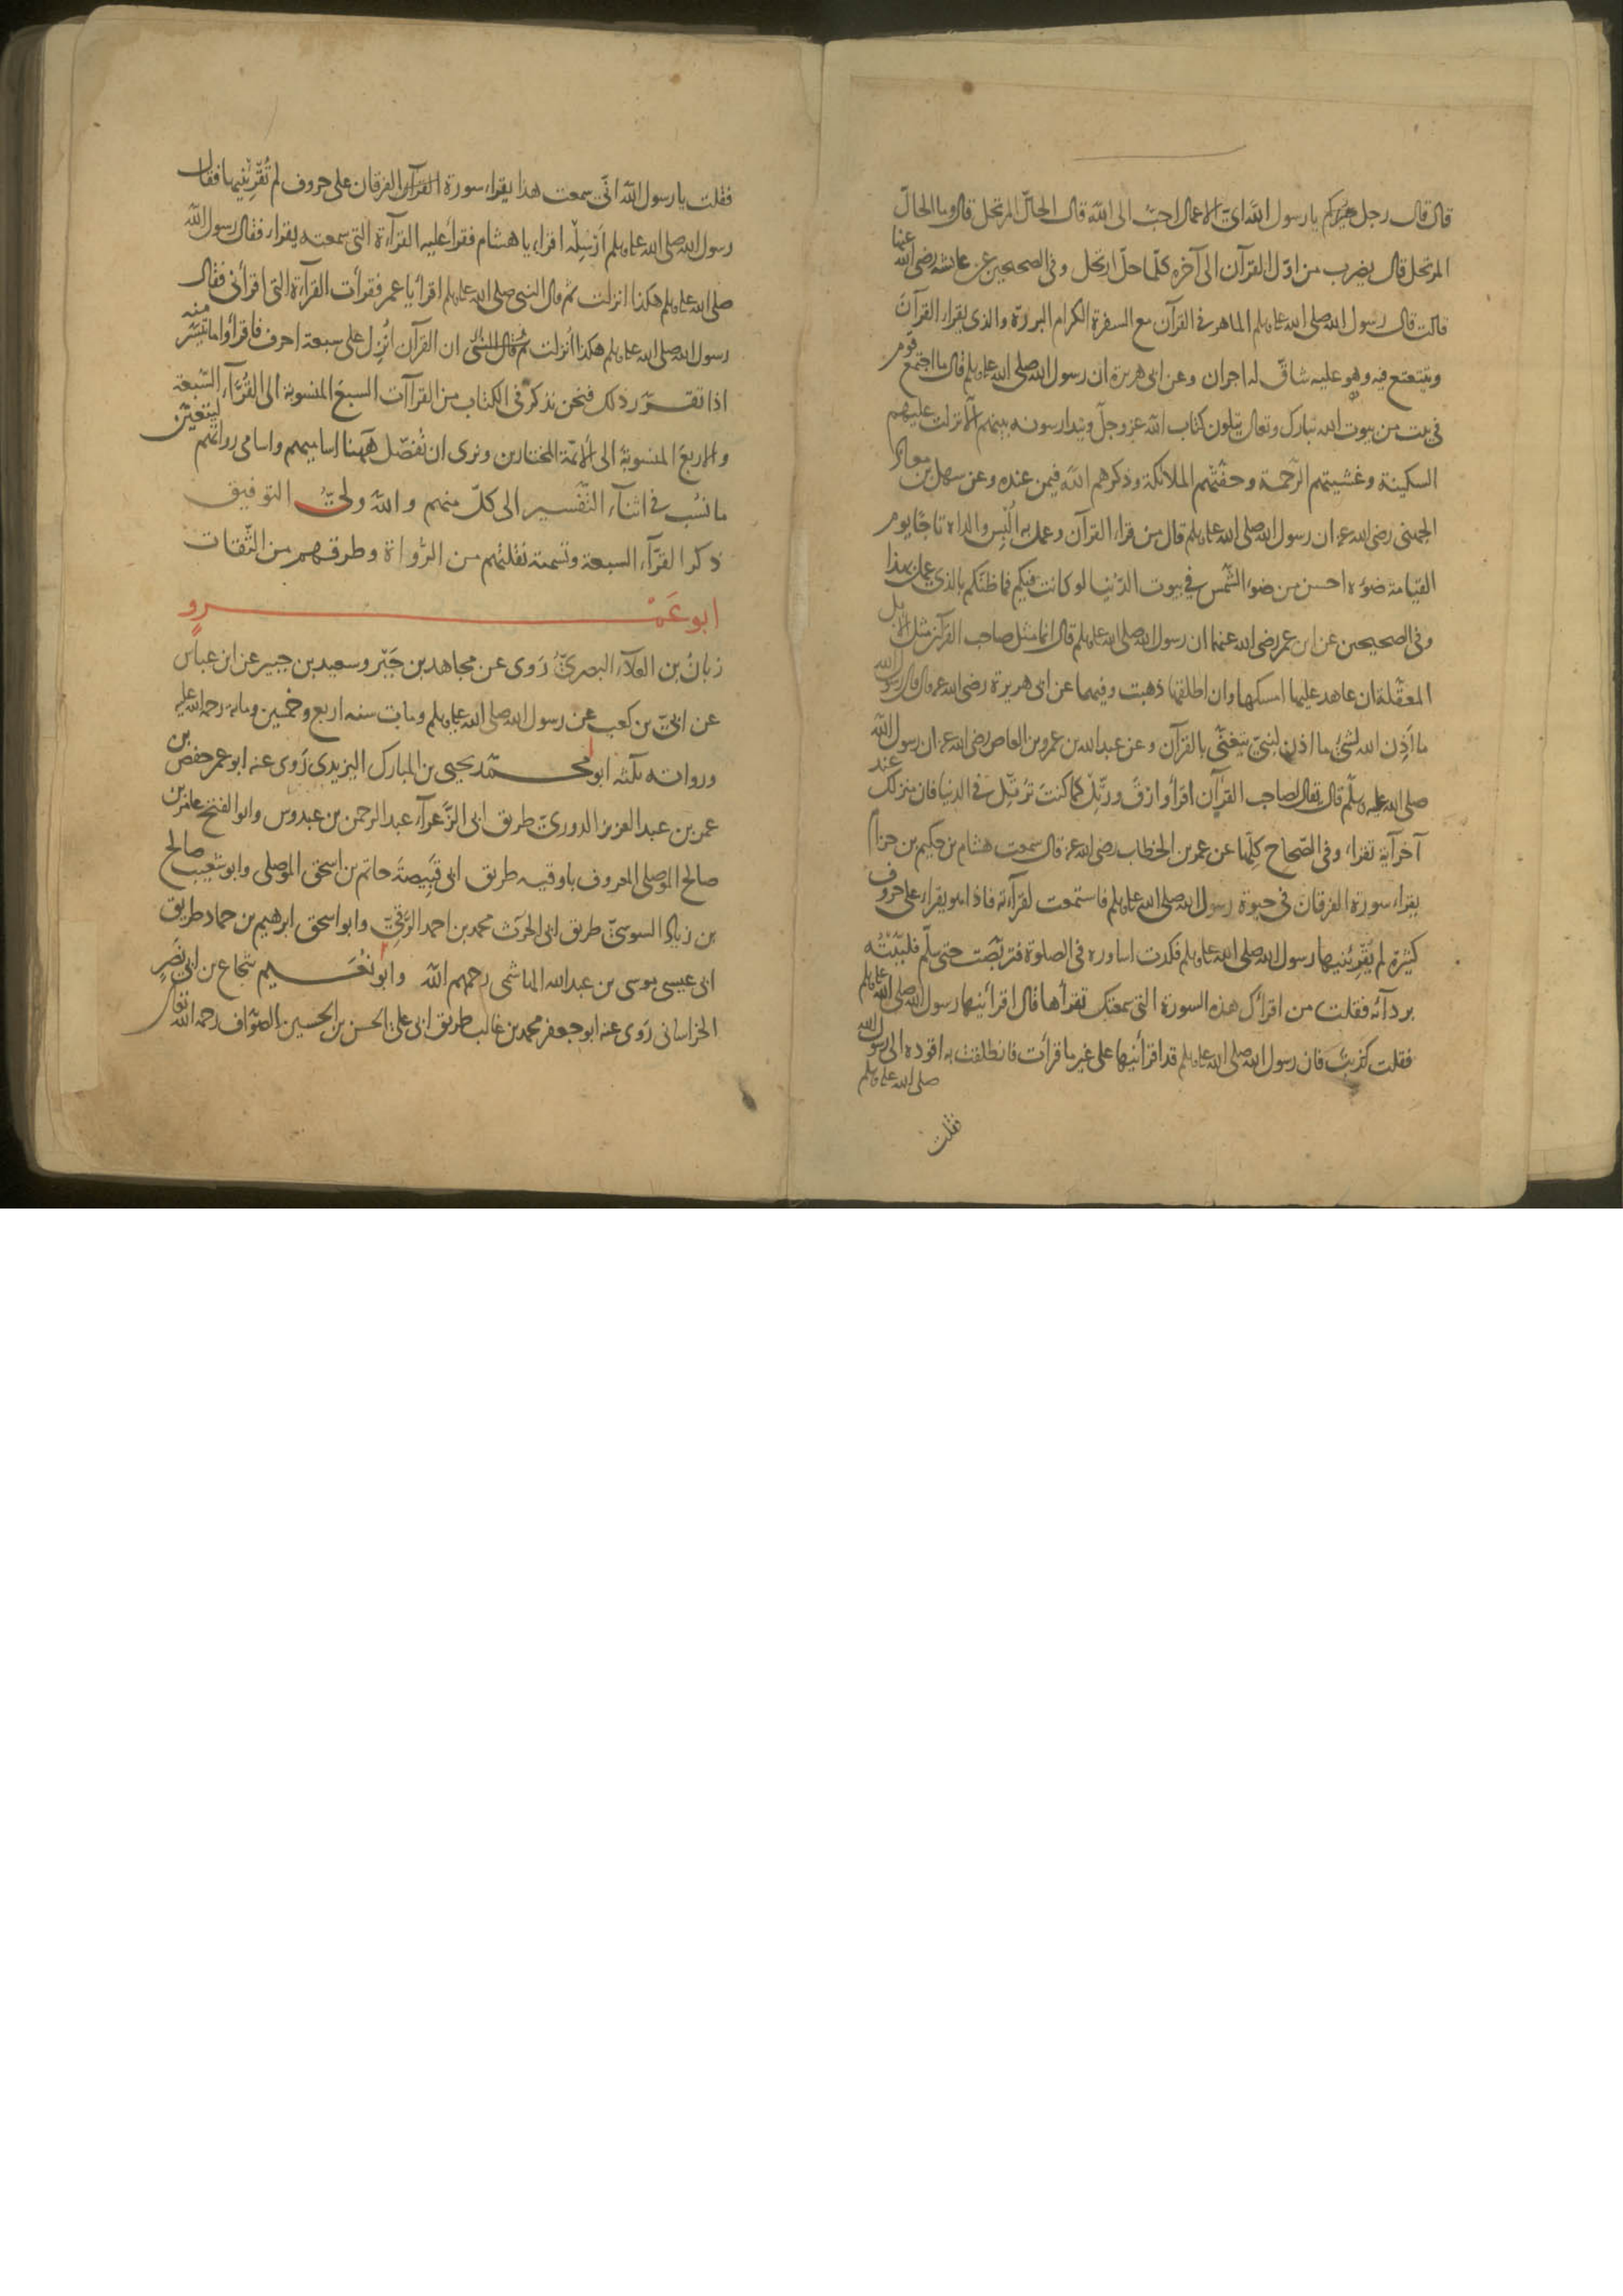 قال قال رجل يا رسول الله اى الاعمال احب الى الله قال الحال المرتحل قال وما الحال
المرتحل قال يضرب من اول القرآن الى آخره كلما حل ارتحل وفى الصحيحين عن عائشة رضى الله عنها
قالت قال رسول الله صلى الله عليه وسلم الماهر فى القرآن مع السفرة الكرام البررة والذى يقراء القرآن
ويتتعتع فيه وهو عليه شاق له اجران وعن ابى هريرة ان رسول الله صلى الله عليه وسلم قال ما اجتمع قوم
فى بيت من بيوت الله تبارك وتعالى يتلون كتاب الله عز وجل ويتدارسونه بينهم الا نزلت عليهم
السكينة وغشيتهم الرحمة وحفتهم الملائكة وذكرهم الله فيمن عنده وعن سهل بن معاذ
الجهنى رضى الله عنه ان رسول الله صلى الله عليه وسلم قال من قراء القرآن وعمل به البس والداه تاجا يوم
القيامة ضوءه احسن من ضوء الشمس فى بيوت الدنيا لو كانت فيكم فما ظنكم بالذى عمل بهذا
وفى الصحيحين عن ابن عمر رضى الله عنهما ان رسول الله صلى الله عليه وسلم قال انما مثل صاحب القرآن مثل الابل
المعقلة ان عاهد عليها امسكها وان اطلقها ذهبت وفيهما عن ابى هريرة رضى الله عنه قال قال رسول الله
ما اذن الله لشئ ما اذن لنبى يتغنى بالقرآن وعن عبد الله بن عمرو بن العاص رضى الله عنه ان رسول الله
صلى الله عليه وسلم قال يقال لصاحب القرآن اقرأ وارق ورتل كما كنت ترتل فى الدنيا فان منزلك عند
آخر آية تقراء وفى الصحاح كلها عن عمر بن الخطاب رضى الله عنه قال سمعت هشام بن حكيم بن حزام
يقراء سورة الفرقان فى حيوة رسول الله صلى الله عليه وسلم فاستمعت لقرآته فاذا هو يقراء على حروف
كثيرة لم يقرئنيها رسول الله صلى الله عليه وسلم فكدت اساوره فى الصلوة فتربصت حتى سلم فلببته
بردآئه فقلت من اقرأك هذه السورة التى سمعتك تقرأها قال اقرأنيها رسول الله صلى الله عليه وسلم
فقلت كذبت فان رسول الله صلى الله عليه وسلم قد اقرأنيها على غير ما قرأت فانطلقت به اقوده الى رسول الله
صلى الله عليه وسلم
فقلت
فقلت يا رسول الله انى سمعت هذا يقراء سورة القرآن الفرقان على حروف لم تقرئنيها فقال
رسول الله صلى الله عليه وسلم ارسله اقراء يا هشام فقرأ عليه القرآءة التى سمعته يقراء فقال رسول الله
صلى الله عليه وسلم هكذا انزلت ثم قال النبى صلى الله عليه وسلم اقرأ يا عمر فقرأت القرآءة التى اقرأنى فقال
رسول الله صلى الله عليه وسلم هكذا انزلت ثم قال النبى ان القرآن انزل على سبعة احرف فاقرأوا ما تيسر منه
اذا تقرر ذلك فنحن نذكر فى الكتاب من القراآت السبع المنسوبة الى القرآء السبعة
والاربع المنسوبة الى الائمة المختارين ونرى ان نفصل ههنا اساميهم واسامى رواتهم ليتعين
ما نسب فى اثنآء التفسير الى كل منهم والله ولى التوفيق
ذكر القرآء السبعة وتسمية نقلتهم من الرواة وطرقهم من الثقات
ابو عمرو
زبان بن العلآء البصرى روى عن مجاهد بن جبر وسعيد بن جبير عن ابن عباس
عن ابى بن كعب عن رسول الله صلى الله عليه وسلم ومات سنه اربع وخمسين ومائة رحمة الله عليه
ورواته ثلثه ابو محمد يحيى بن المبارك اليزيدى روى عنه ابو عمر حفص بن
عمر بن عبد العزيز الدورى طريق ابى الزعرآء عبد الرحمن بن عبدوس وابو الفتح عامر بن
صالح الموصلى المعروف باوقيه طريق ابى قبيصة حاتم بن اسحق الموصلى وابو شعيب صالح
بن زياد السوسى طريق ابى الحرث محمد بن احمد الرقى وابو اسحق ابرهيم بن حماد طريق
ابى عيسى موسى بن عبد الله الهاشمى رحمهم الله وابو نعيم شجاع بن ابى نصر
الخراسانى روى عنه ابو جعفر محمد بن غالب طريق ابى على الحسن بن الحسين الصواف رحمه الله